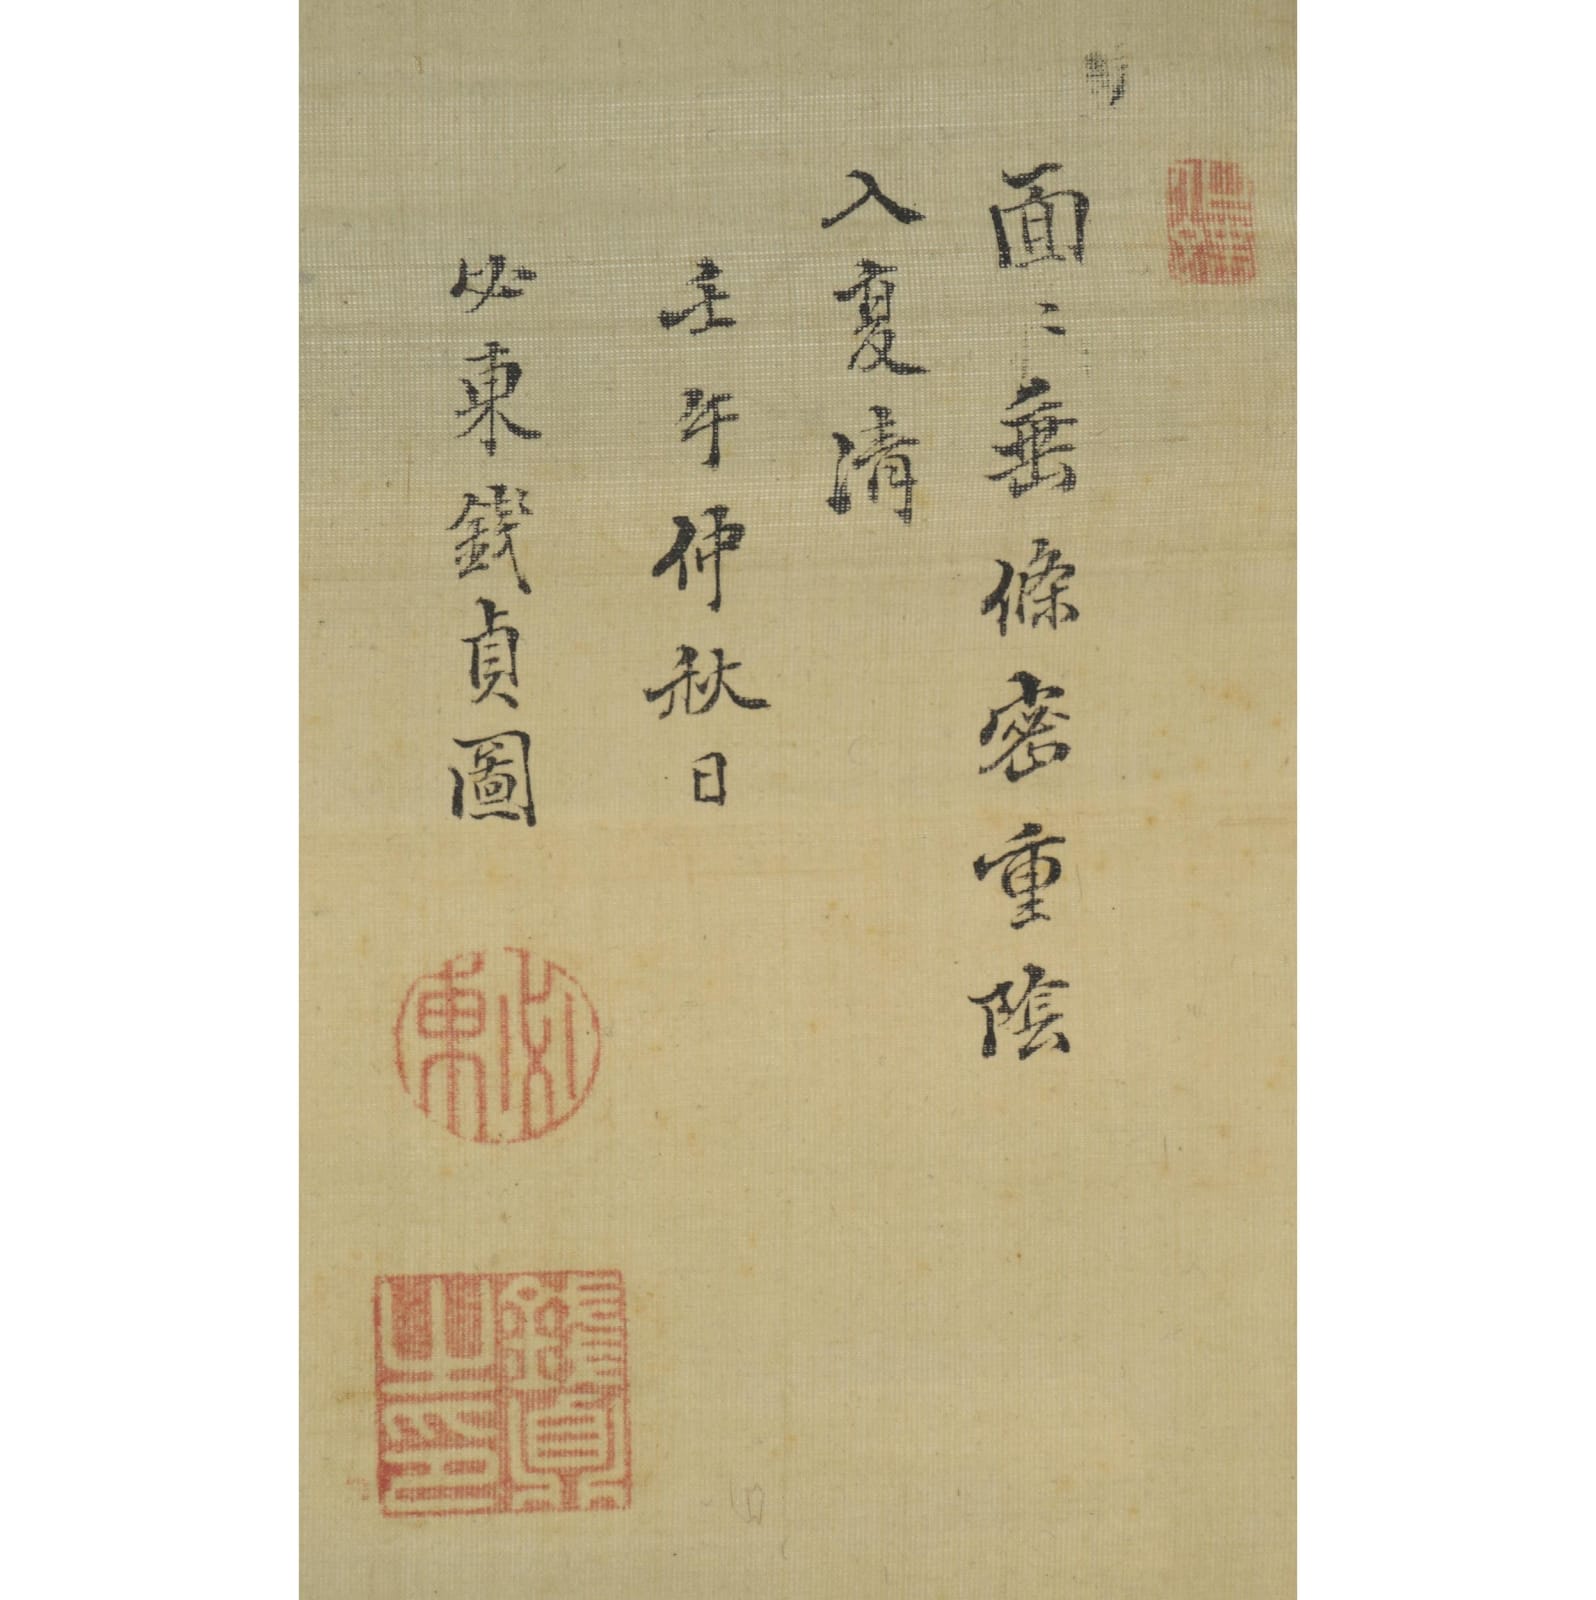 面〻垂條密重陰
入夏清
壬午仲秋日
必東錢貞圖
必東
錢貞之印